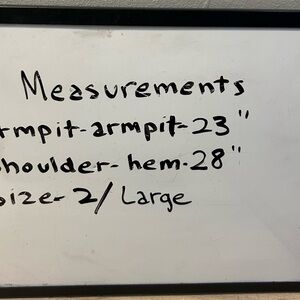 Measurements
rmpit-armpit-23"
shoulder-hem-28"
size-2/Large